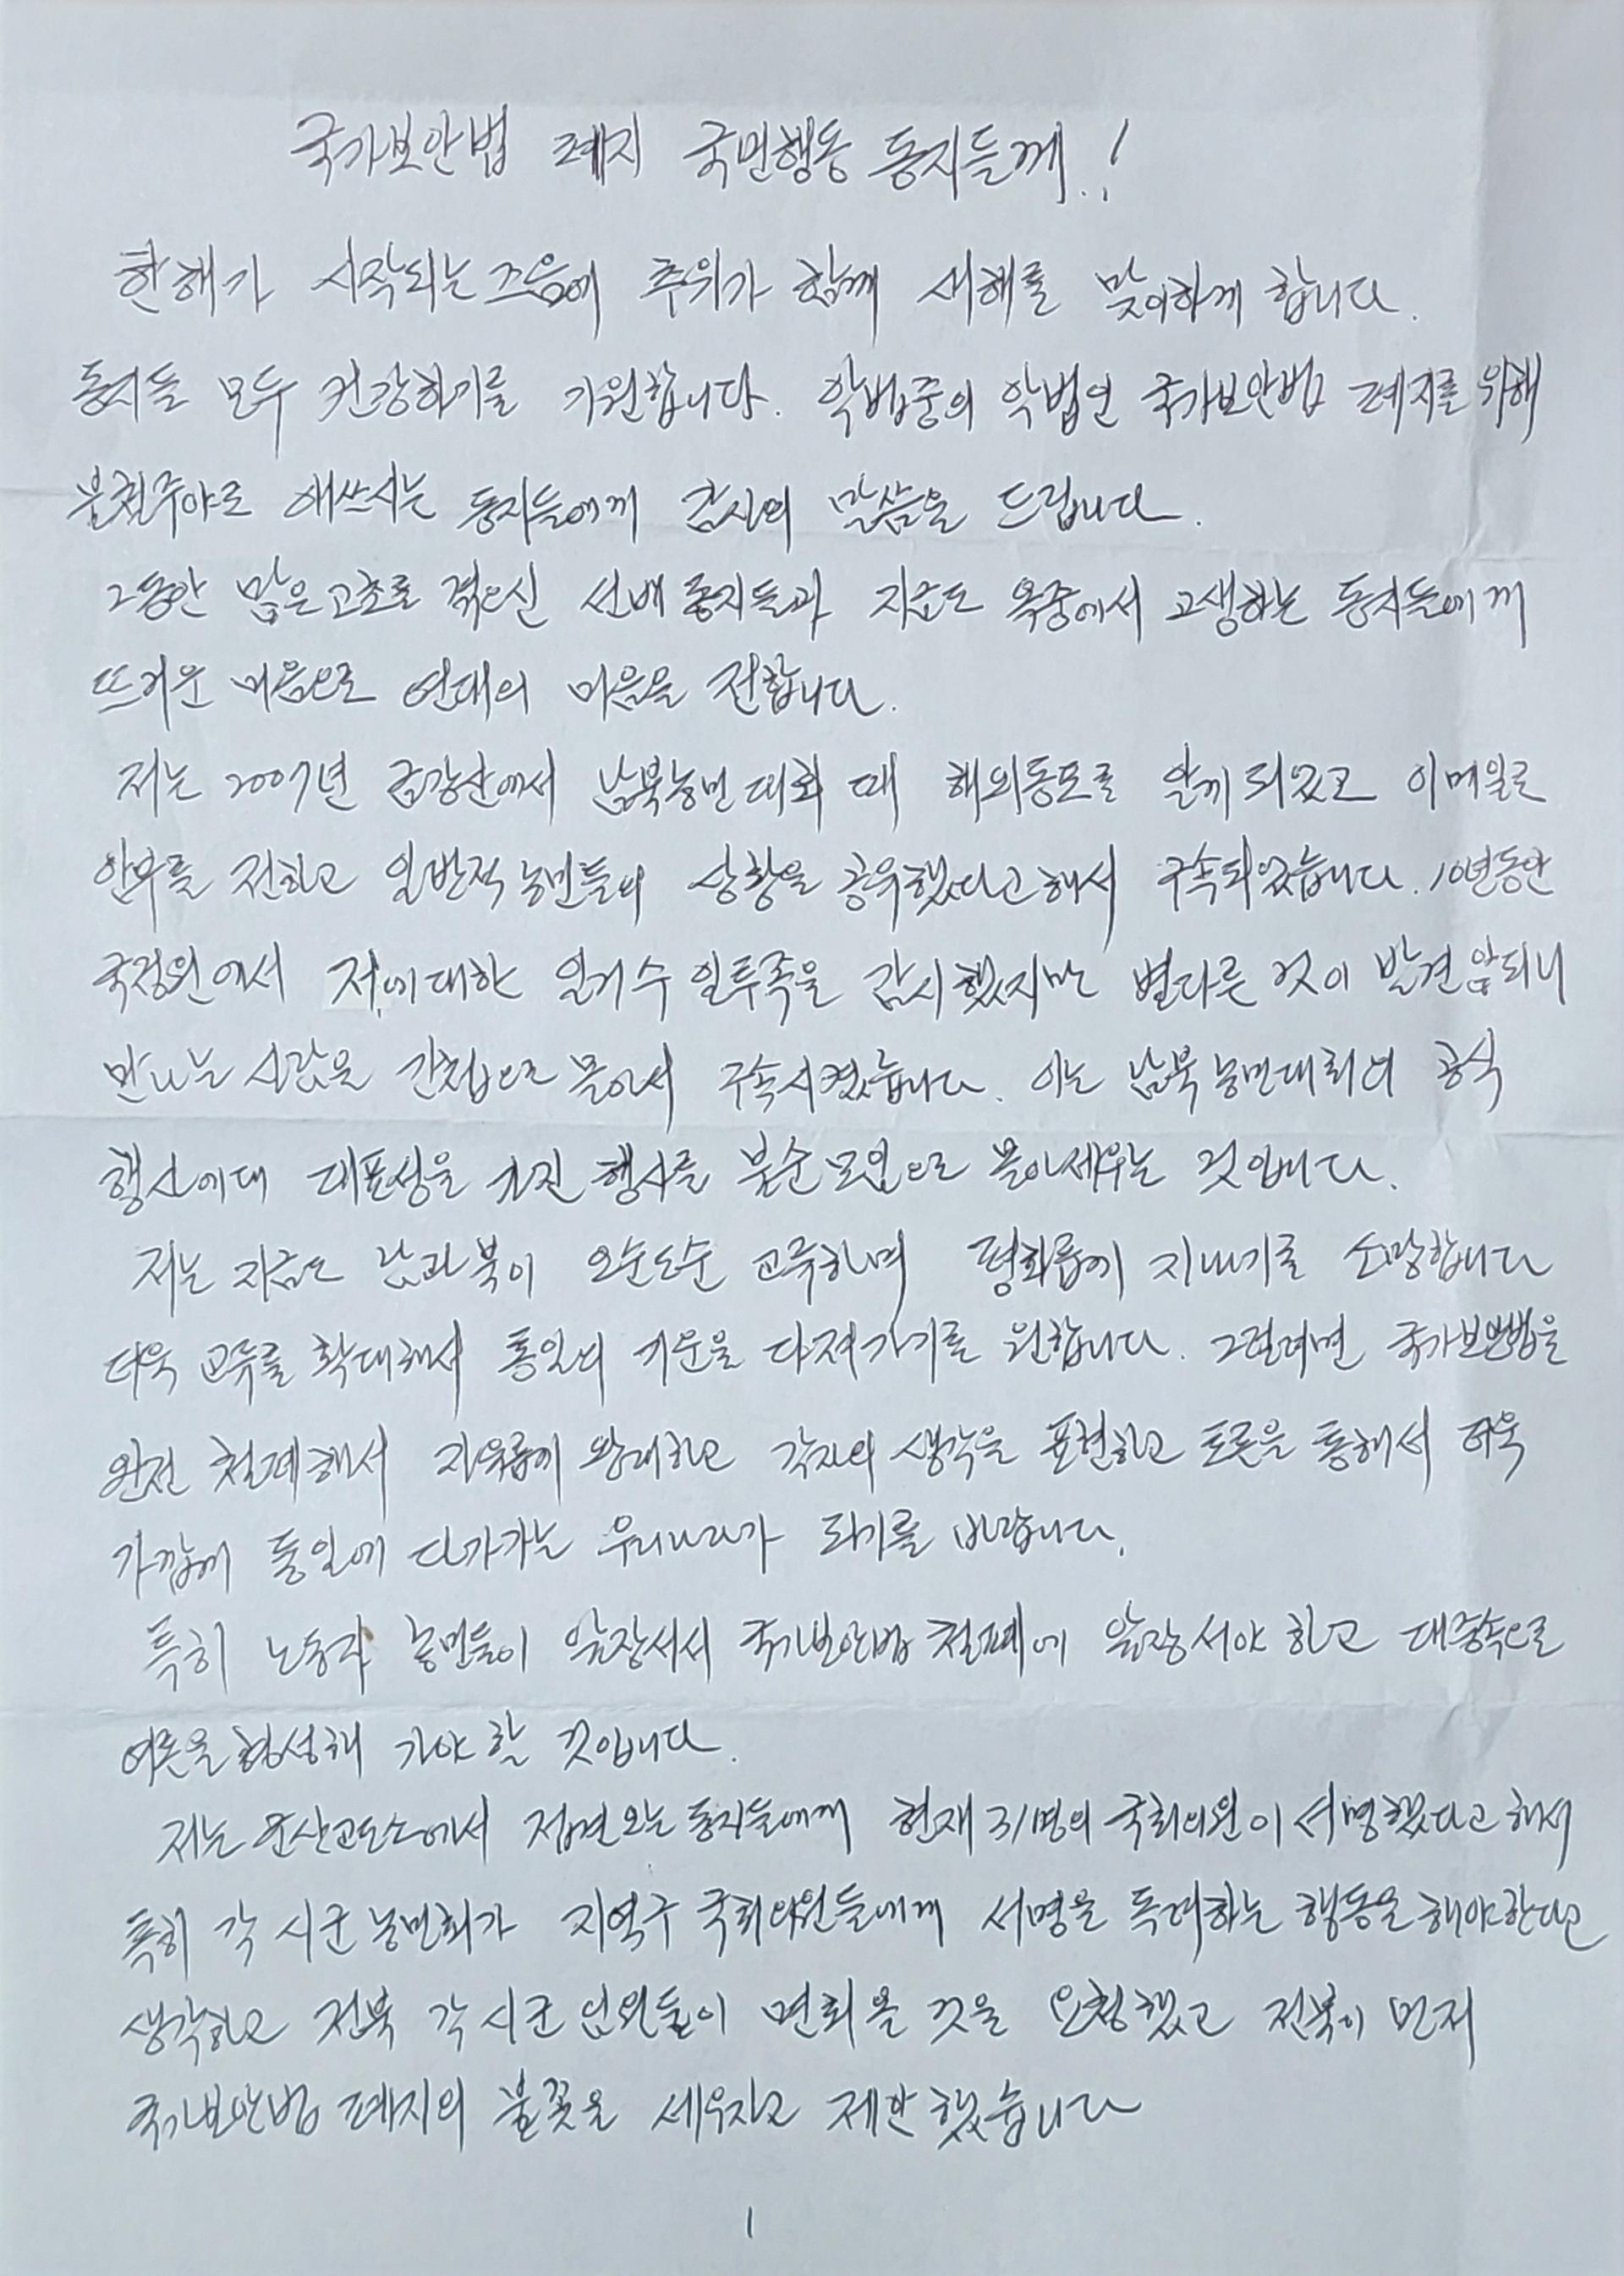 국가보안법 폐지 국민행동 동지들께.!
한해가 시작되는 즈음에 추위가 함께 새해를 맞이하게 합니다.
동지들 모두 건강하기를 기원합니다. 악법중의 악법인 국가보안법 폐지를 위해
불철주야로 애쓰시는 동지들에게 감사의 말씀을 드립니다.
그동안 많은 고초를 겪으신 선배 동지들과 지금도 옥중에서 고생하는 동지들에게
뜨거운 마음으로 연대의 마음을 전합니다.
저는 2007년 금강산에서 남북농민대회 때 해외동포를 알게 되었고 이메일로
안부를 전하고 일반적 농민들의 상황을 공유했다고 해서 구속되었습니다. 10년동안
국정원에서 저에대한 일거수 일투족을 감시했지만 별다른 것이 발견 않되니
만나는 사람을 간첩으로 몰아서 구속시켰습니다. 이는 남북농민대회의 공식
행사에대 대표성을 가진 행사를 불순모임으로 몰아세우는 것입니다.
저는 지금도 남과 북이 오순도순 교류하며 평화롭게 지내기를 소망합니다
더욱 교류를 확대해서 통일의 기운을 다져가기를 원합니다. 그럴려면 국가보안법을
완전 철폐해서 자유롭게 왕래하고 각자의 생각을 표현하고 토론을 통해서 더욱
가깝게 통일에 다가가는 우리나라가 되기를 바랍니다.
특히 노동자 농민들이 앞장서서 국가보안법 철폐에 앞장서야 하고 대중속으로
여론을 형성해 가야 할 것입니다.
저는 군산교도소에서 접견오는 동지들에게 현재 31명의 국회의원이 서명했다고 해서
특히 각 시군 농민회가 지역구 국회의원들에게 서명을 독려하는 행동을 해야한다고
생각하고 전북 각 시군 임원들이 면회올 것을 요청했고 전북이 먼저
국가보안법 폐지의 불꽃을 세우자고 제안했습니다
1